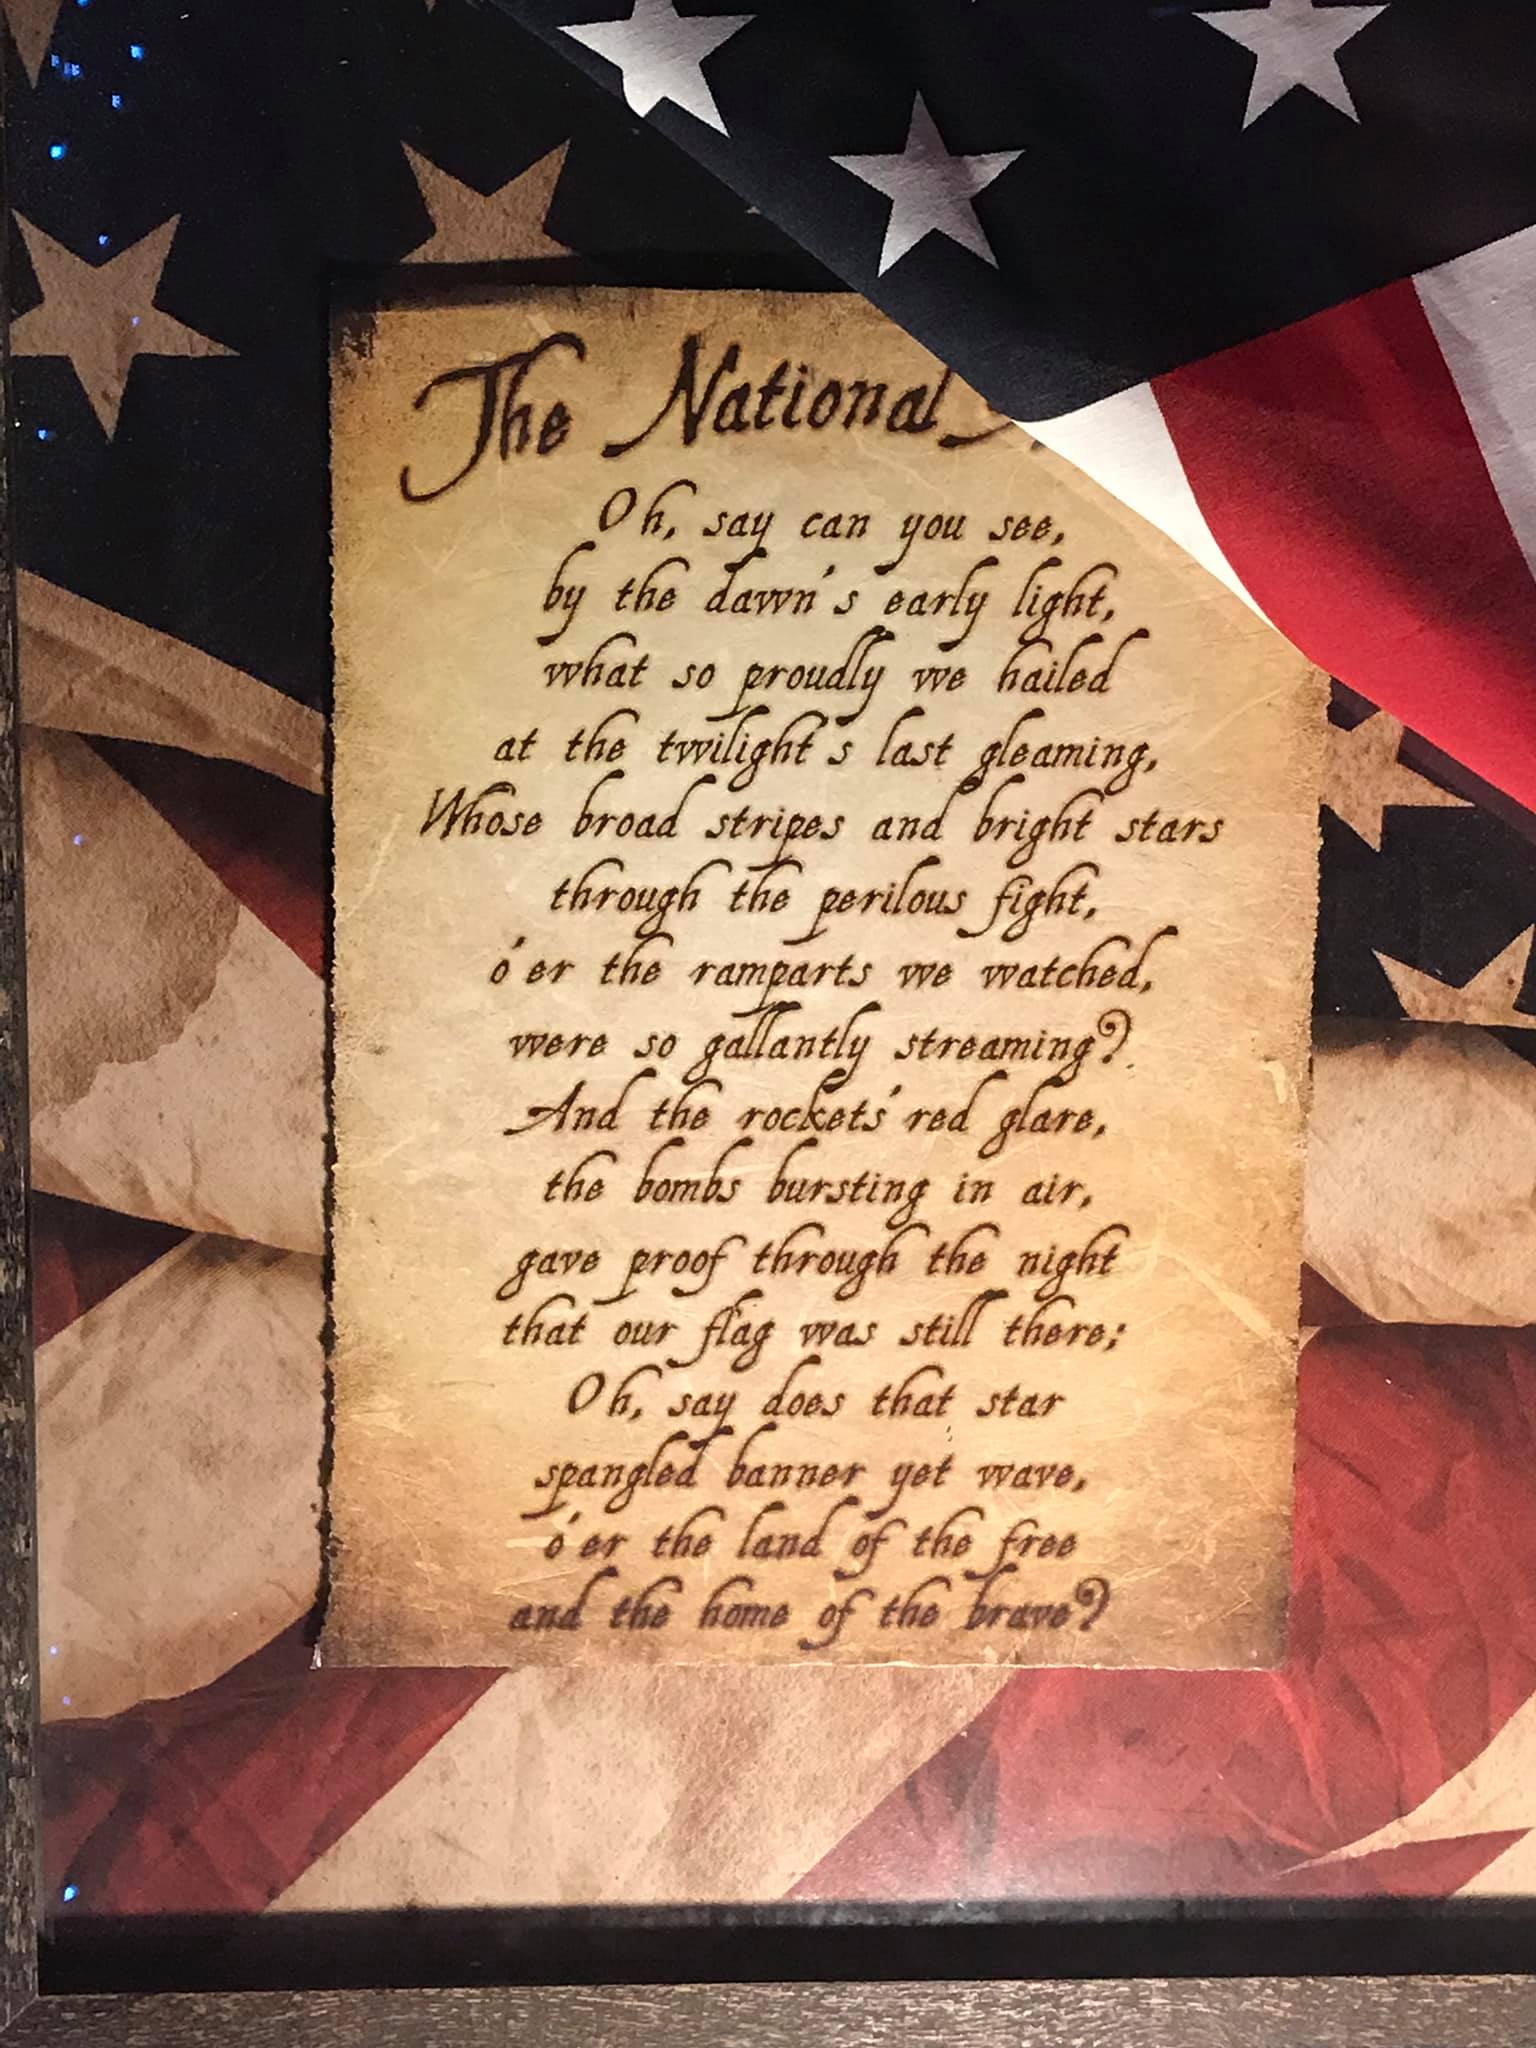 The National
Oh, say can you see,
by the dawn's early light,
what so proudly we hailed
at the twilight's last gleaming,
Whose broad stripes and bright stars
through the perilous fight,
o'er the ramparts we watched,
were so gallantly streaming?
And the rockets' red glare,
the bombs bursting in air,
gave proof through the night
that our flag was still there;
Oh, say does that star
spangled banner yet wave,
o'er the land of the free
and the home of the brave?